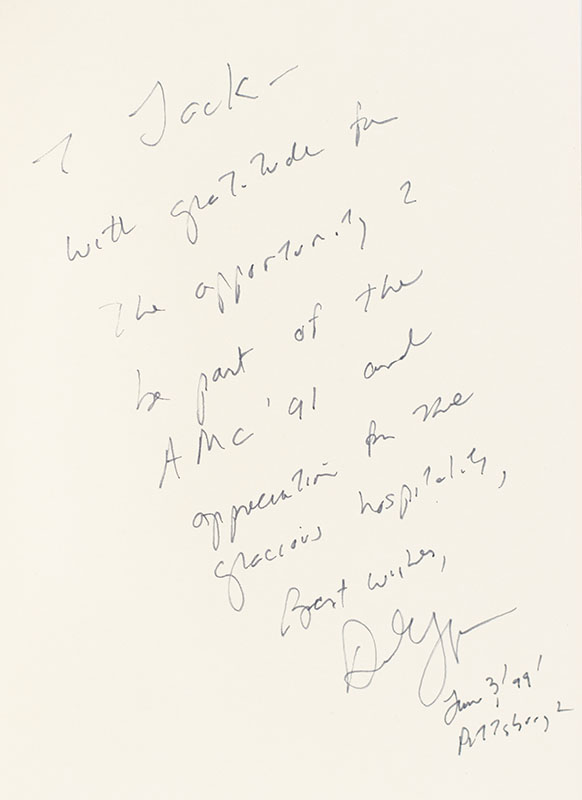 To Jack-
with gratitude for
the opportunity to
be part of the
AMC '91 and
appreciation for the
gracious hospitality,
Best wishes,
Pittsburgh